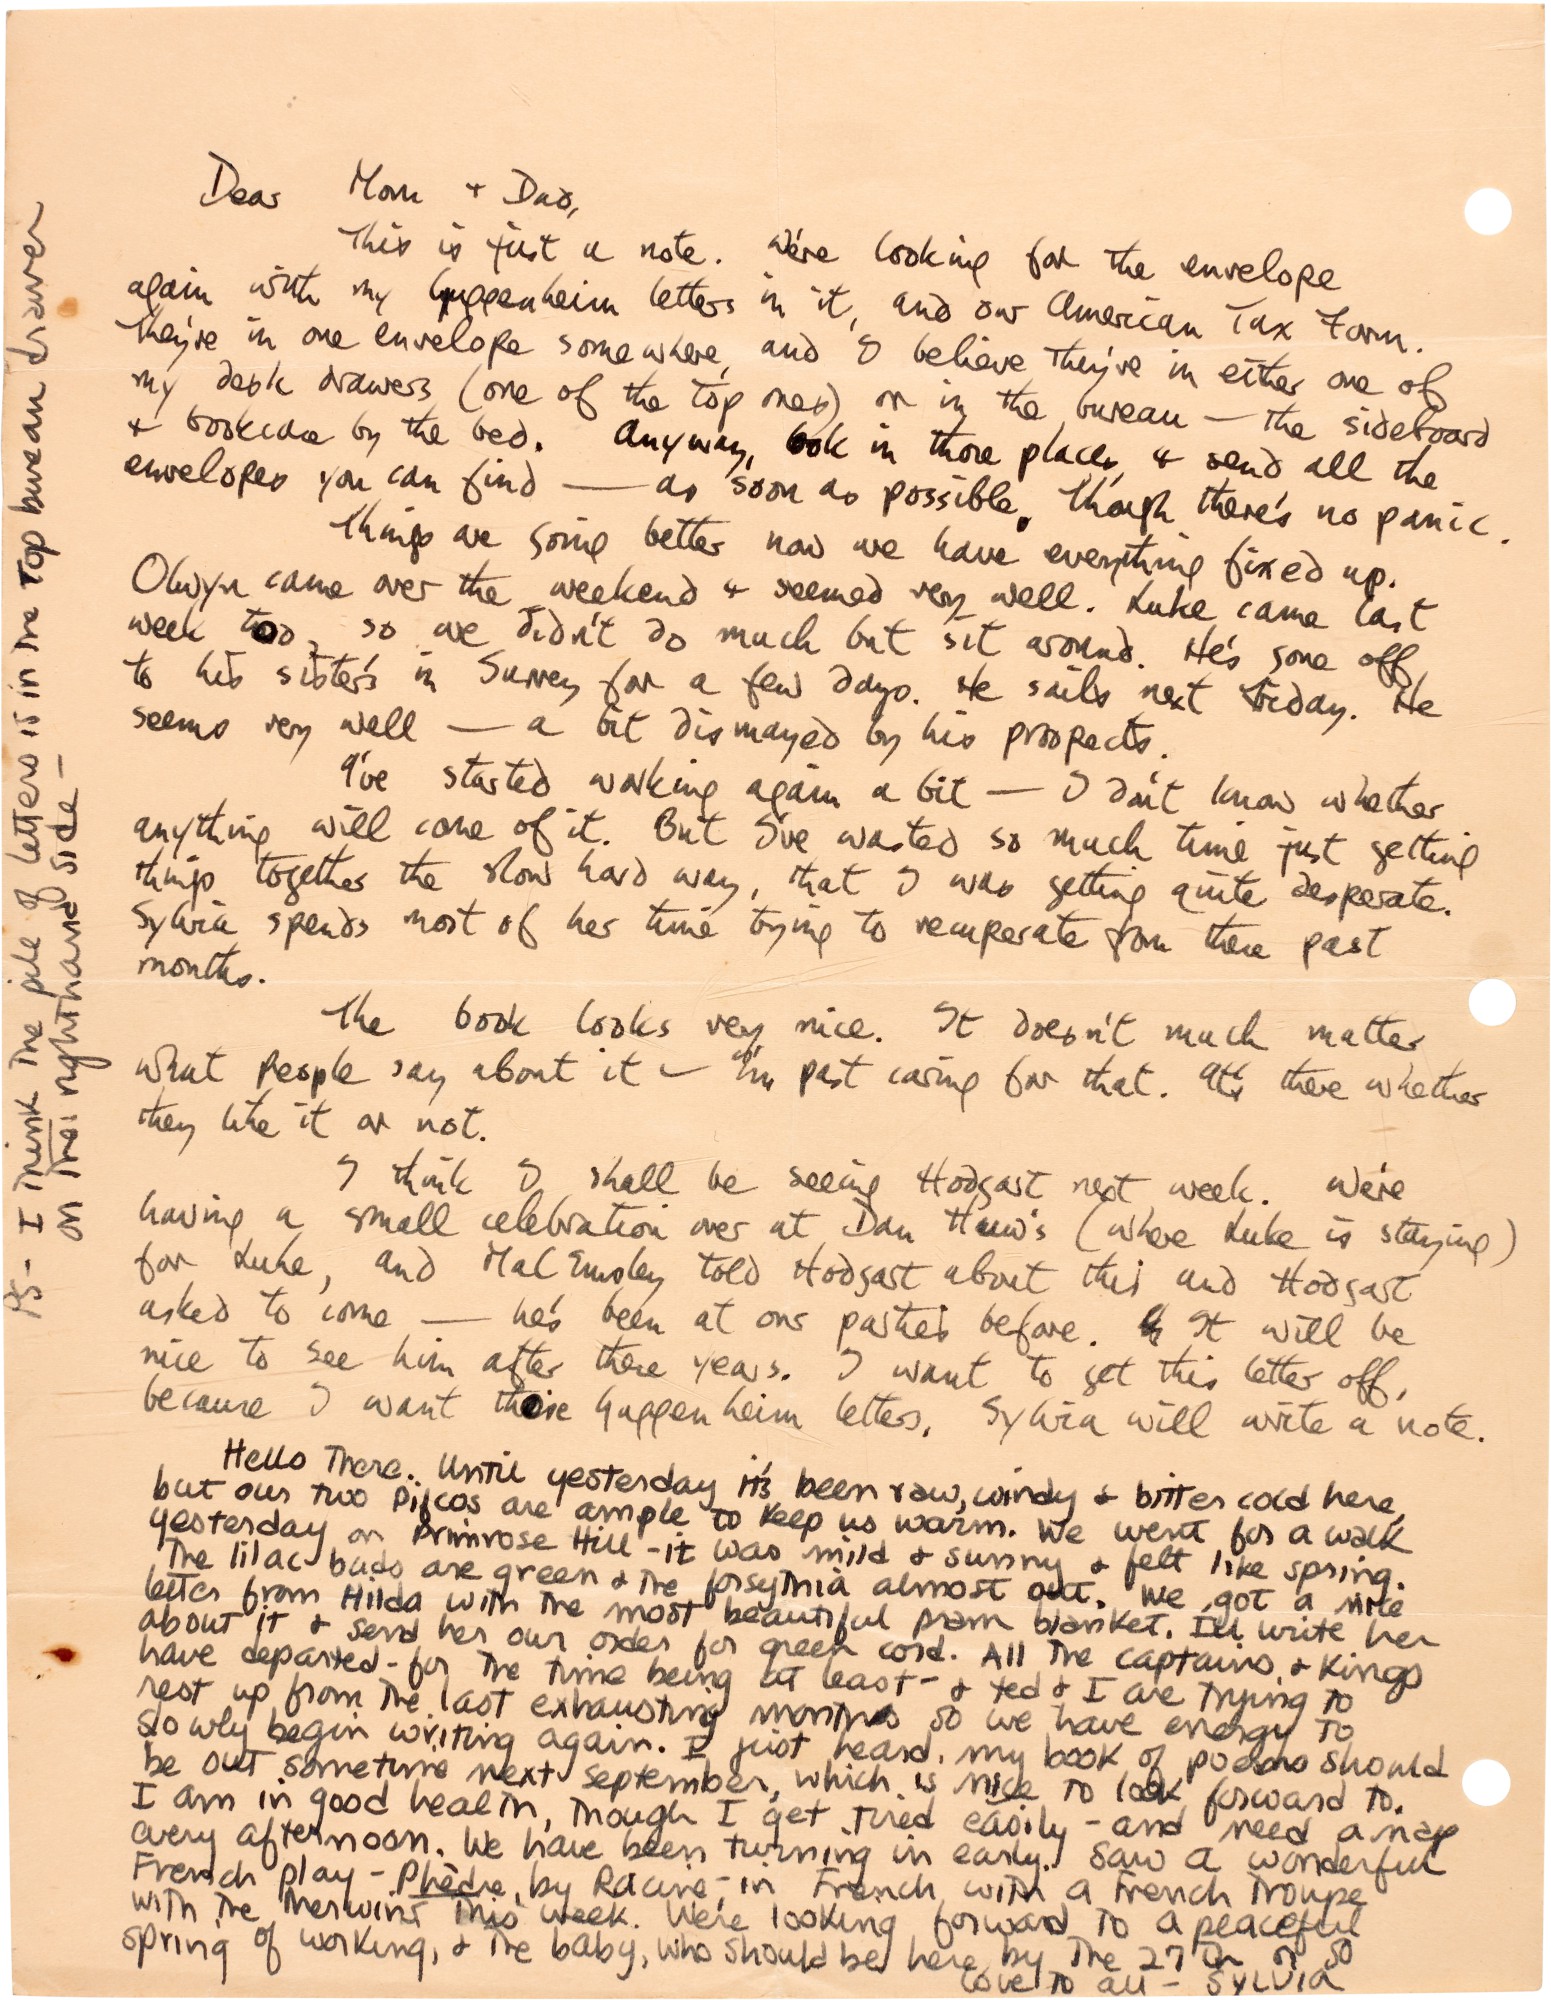 Dear Mom + Dad,
This is just a note. We're looking for the envelope
again with my Guggenheim letters in it, and our American Tax Form.
They're in one envelope somewhere, and I believe they're in either one of
my desk drawers (one of the top ones) or in the bureau — the sideboard
+ bookcase by the bed. Anyway, look in those places, & send all the
envelopes you can find — as soon as possible, though there's no panic.
Things are going better now we have everything fixed up.
Olwyn came over the weekend & seemed very well. Luke came last
week too, so we didn't do much but sit around. He's gone off
to his sister's in Surrey for a few days. He sails next Friday. He
seems very well — a bit dismayed by his prospects.
I've started working again a bit — I don't know whether
anything will come of it. But I've wasted so much time just getting
things together the slow hard way, that I was getting quite desperate.
Sylvia spends most of her time trying to recuperate from these past
months.
The book looks very nice. It doesn't much matter
what people say about it — I'm past caring for that. It's there whether
they like it or not.
I think I shall be seeing Hodgart next week. We're
having a small celebration over at Dan Huws's (where Luke is staying)
for Luke, and Mal Emsley told Hodgart about this and Hodgart
asked to come — he's been at our parties before. It will be
nice to see him after these years. I want to get this letter off,
because I want those Guggenheim letters. Sylvia will write a note.
Hello There. Until yesterday it's been raw, windy & bitter cold here,
but our two Pifcos are ample to keep us warm. We went for a walk
yesterday on Primrose Hill - it was mild & sunny & felt like spring.
The lilac buds are green & the forsythia almost out. We got a nice
letter from Hilda with the most beautiful pram blanket. I'll write her
about it & send her our order for green cord. All the captains & kings
have departed - for the time being at least - & Ted & I are trying to
rest up from the last exhausting months so we have energy to
slowly begin writing again. I just heard my book of poems should
be out sometime next September, which is nice to look forward to.
I am in good health, though I get tired easily - and need a nap
every afternoon. We have been turning in early. Saw a wonderful
French play - Phèdre, by Racine, in French with a French troupe
with the Merwins this week. We're looking forward to a peaceful
spring of working, & the baby, who should be here by the 27th or so
Love to all - SYLVIA
PS - I Think The pile of letters is in the Top bureau drawer
on the right hand side -